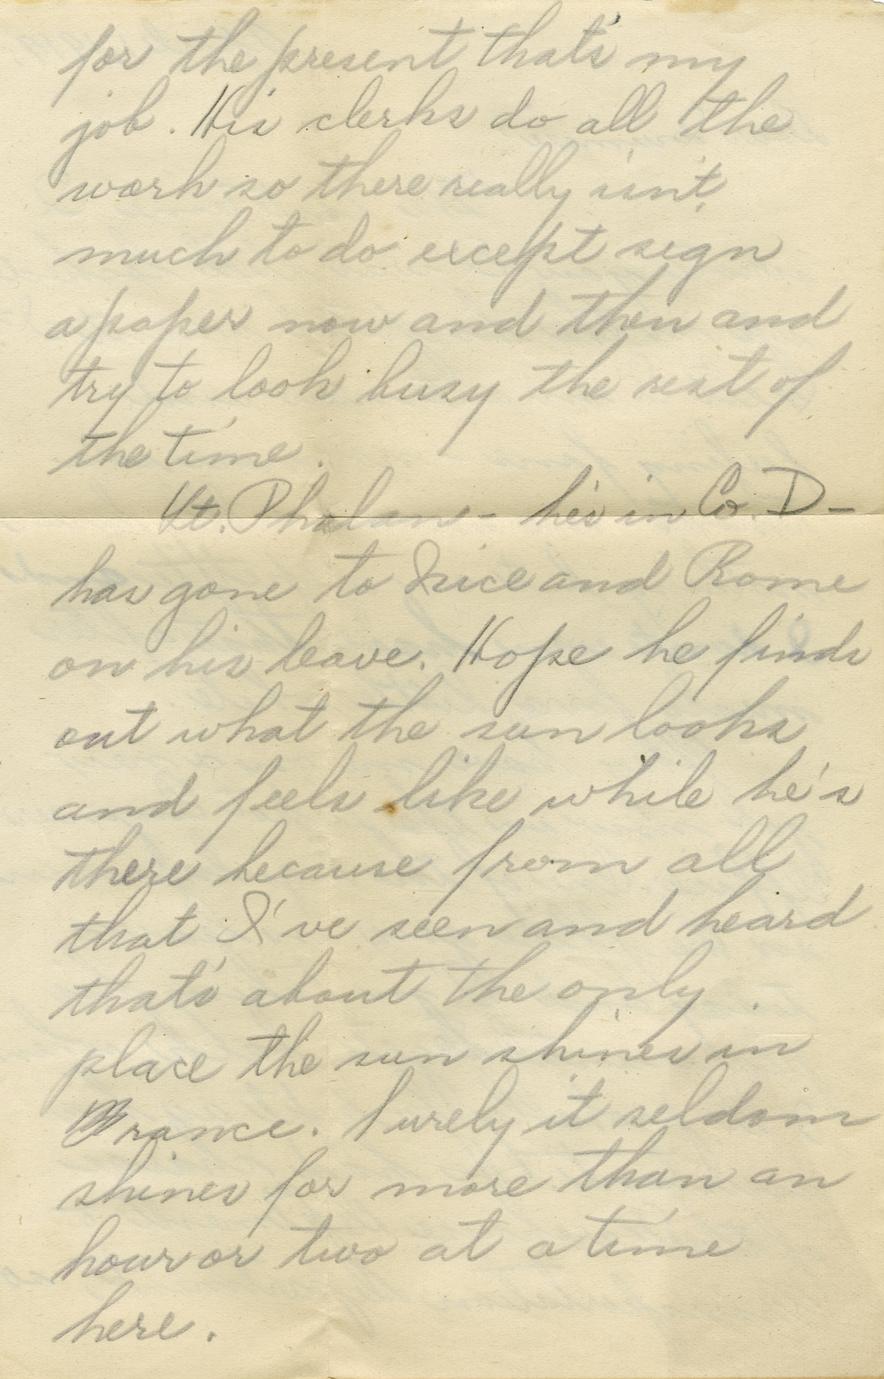 for the present that's my
job. His clerks do all the
work so there really isn't
much to do except sign
a paper now and then and
try to look busy the rest of
the time.
Lt. Phalan - he's in Co. D -
has gone to Nice and Rome
on his leave. Hope he finds
out what the sun looks
and feels like while he's
there because from all
that I've seen and heard
that's about the only
place the sun shines in
France. Surely it seldom
shines for more than an
hour or two at a time
here.